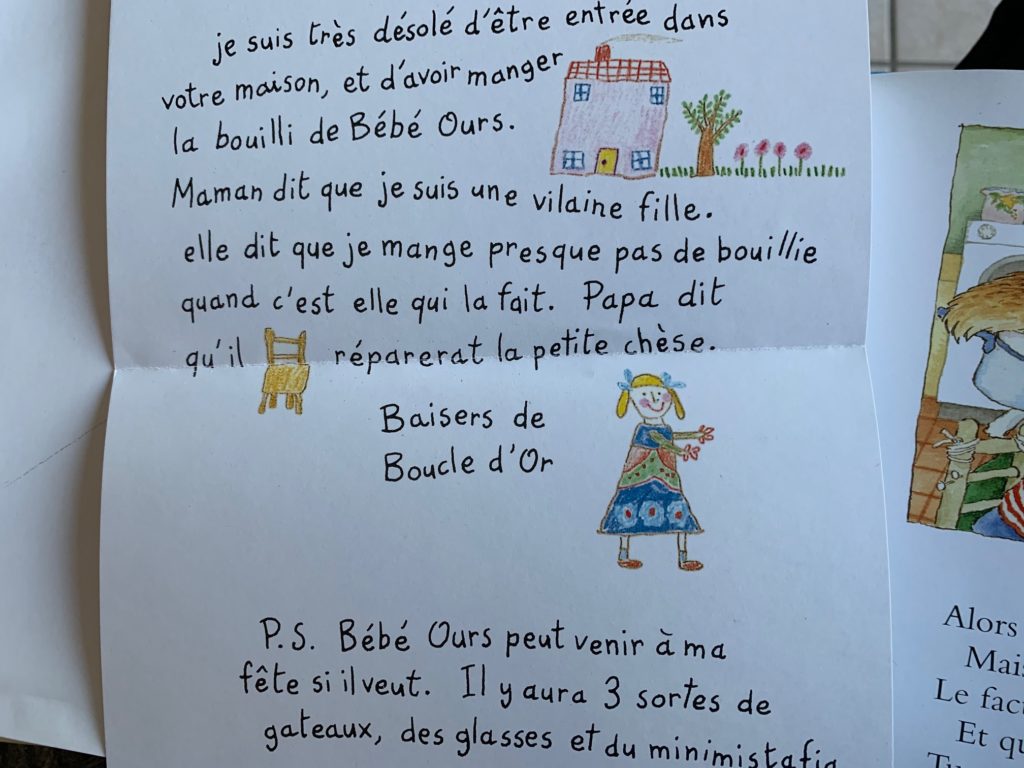 je suis très désolé d'être entrée dans
votre maison, et d'avoir manger
la bouilli de Bébé Ours.
Maman dit que je suis une vilaine fille.
elle dit que je mange presque pas de bouillie
quand c'est elle qui la fait. Papa dit
qu'il réparerat la petite chèse.
Baisers de
Boucle d'Or
P.S. Bébé Ours peut venir à ma
fête si il veut. Il y aura 3 sortes de
gateaux, des glasses et du minimistafia
Alors
Mais
Le fact
Et qu
Tu